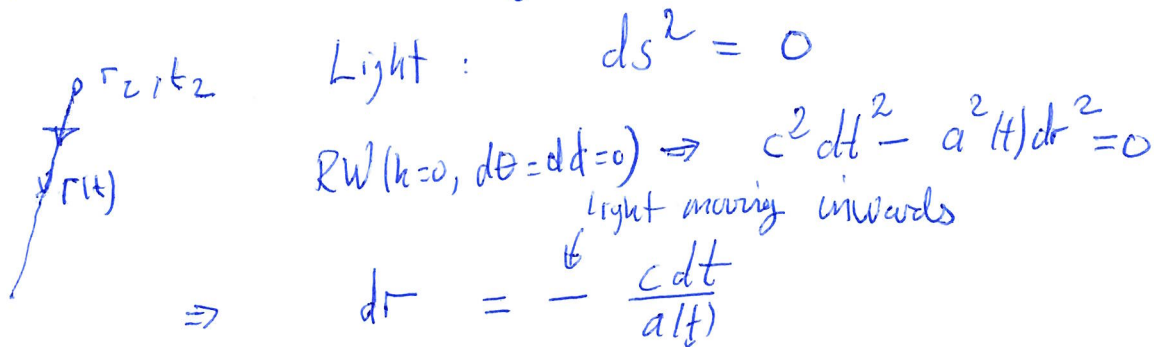 Light : ds² = 0
r₂, t₂
RW (k=0, dθ=dϕ=0) ⇒ c²dt² − a²(t)dr² = 0
r(t)
Light moving inwards
⇒ dr = − c dt / a(t)